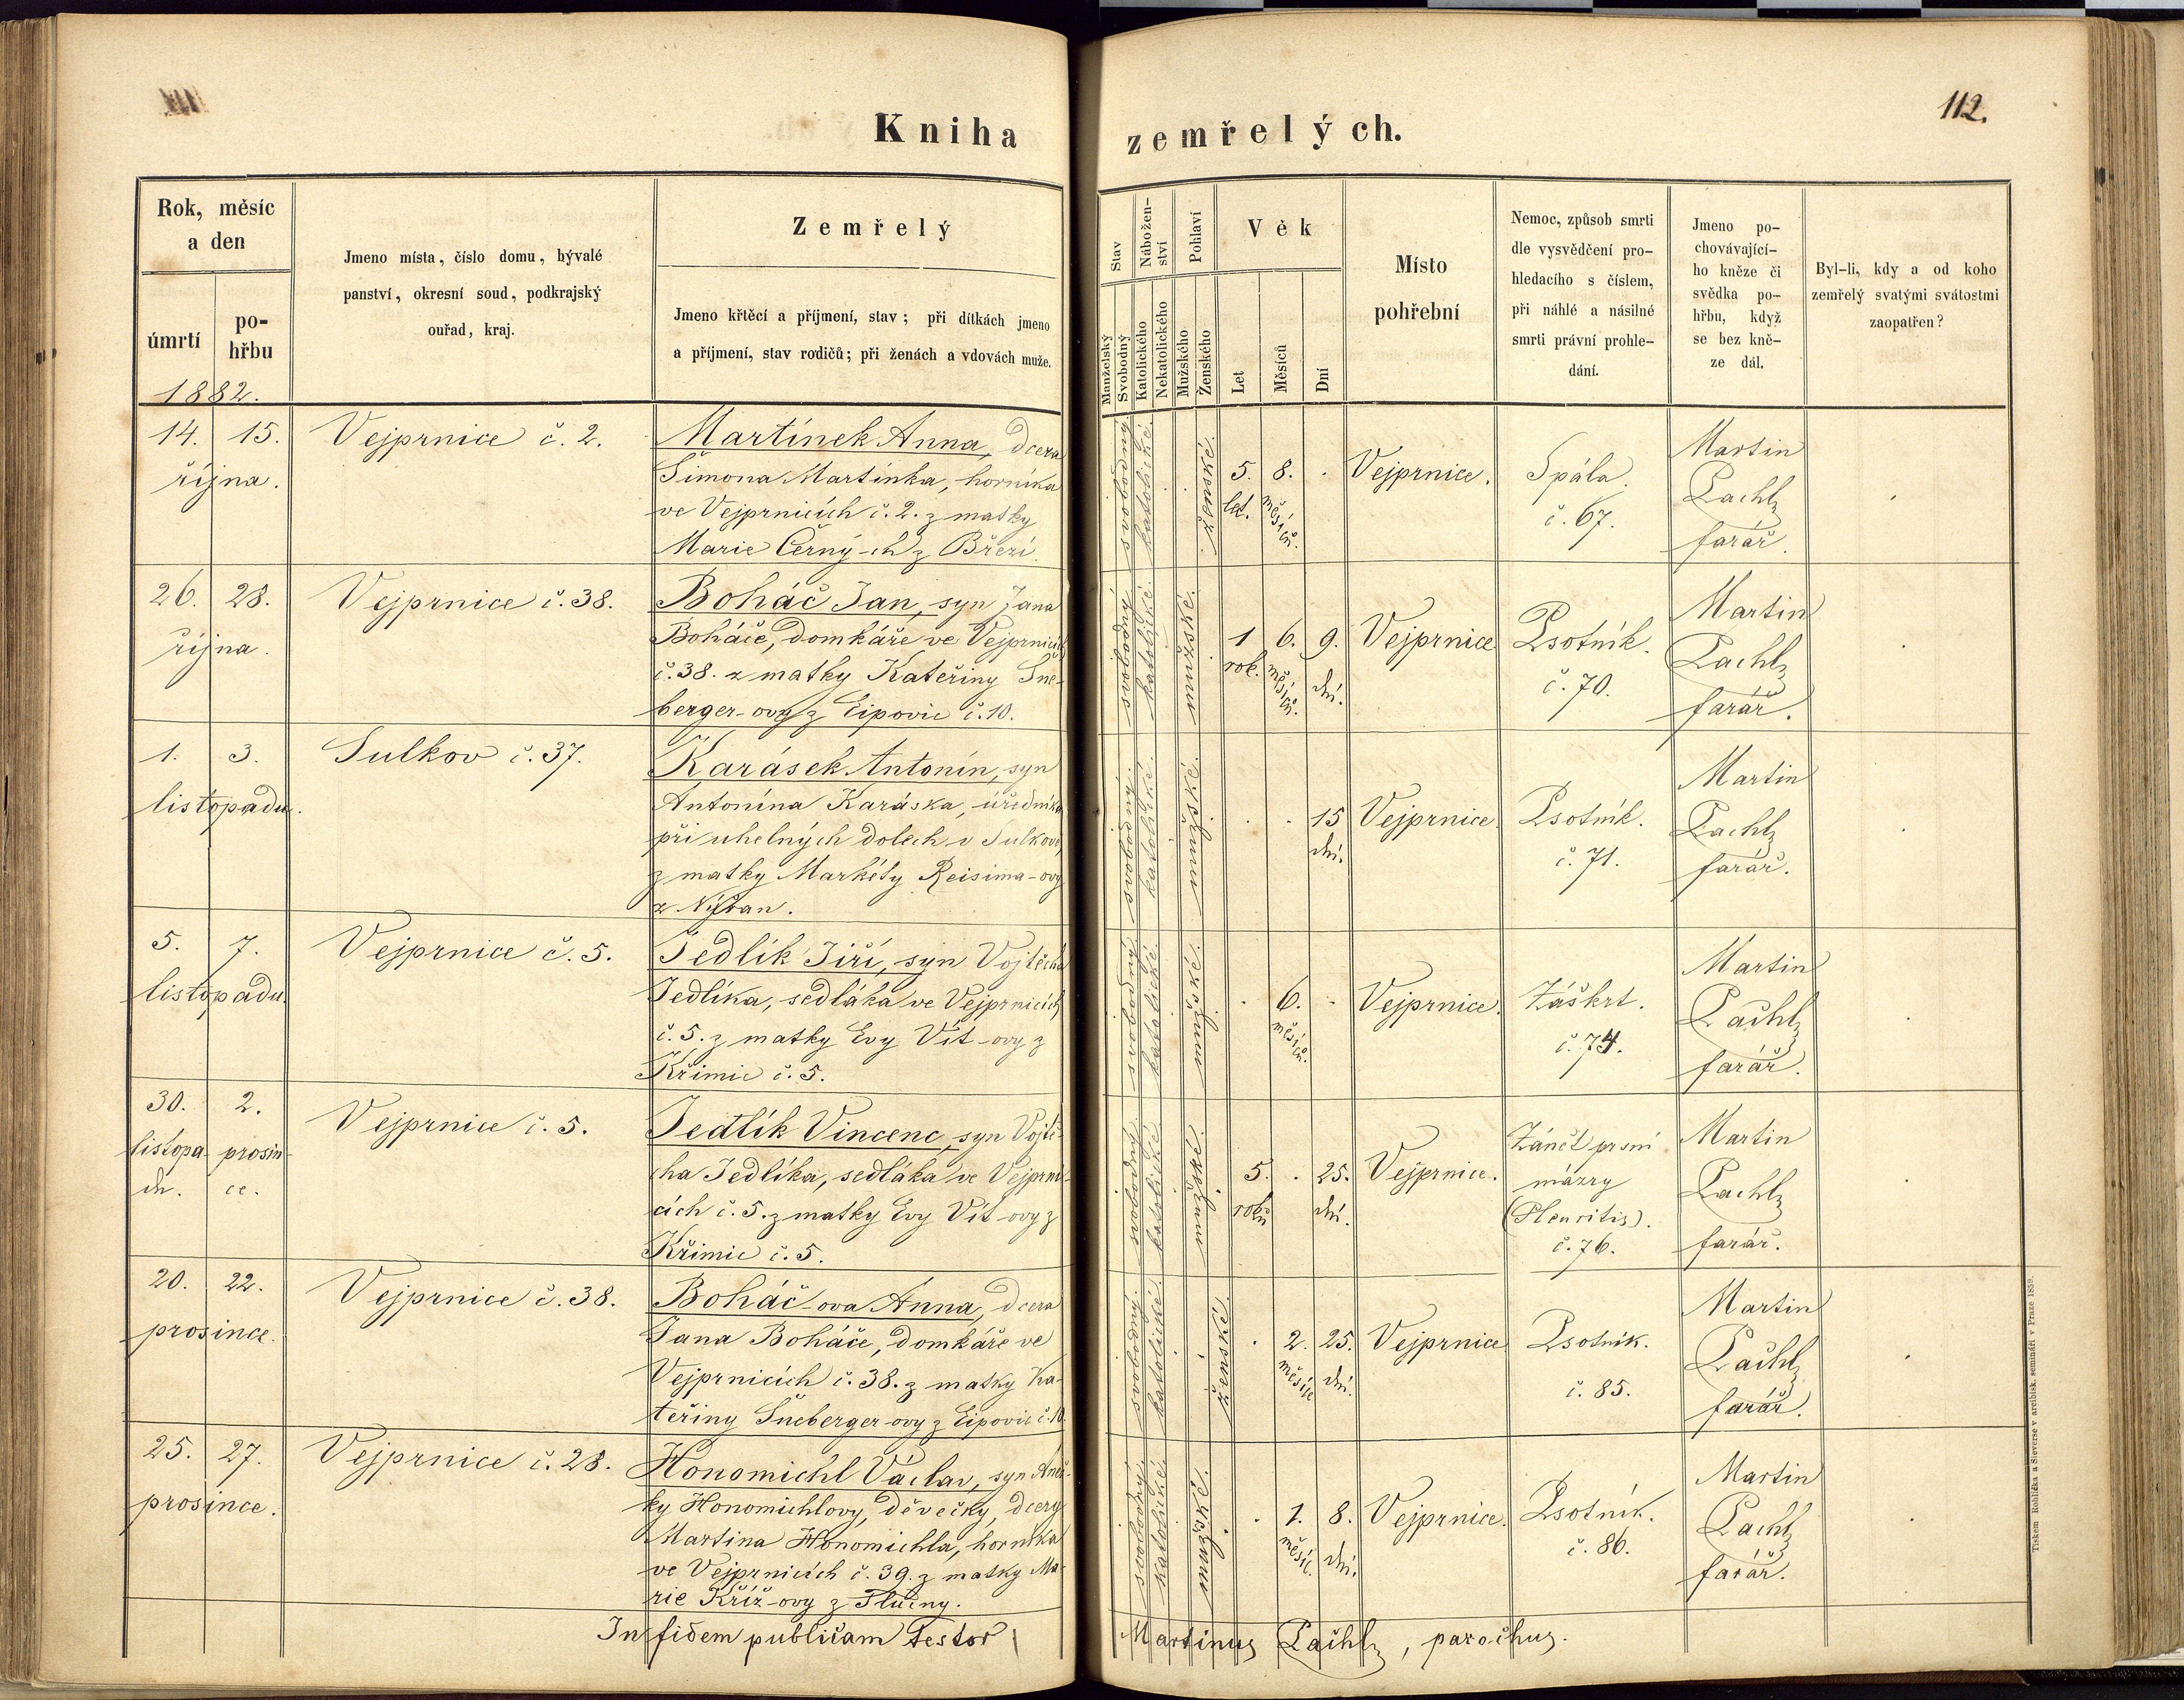 112.
Kniha zemřelých.
Rok, měsíc
a den
úmrtí
po-
hřbu
1882.
Jmeno místa, číslo domu, hývalé
panství, okresní soud, podkrajský
ouřad, kraj.
Zemřelý
Jmeno křtěcí a příjmení, stav; při dítkách jmeno
a příjmení, stav rodičů; při ženách a vdovách muže.
Stav
Manželský
Svobodný
Nábožen-
ství
Katolického
Nekatolického
Pohlaví
Mužského
Ženského
Věk
Let
Měsíců
Dní
Místo
pohřební
Nemoc, způsob smrti
dle vysvědčení pro-
hledacího s číslem,
při náhlé a násilné
smrti právní prohle-
dání.
Jmeno po-
chovávající-
ho kněze či
svědka po-
hřbu, když
se bez kně-
ze dál.
Byl-li, kdy a od koho
zemřelý svatými svátostmi
zaopatřen?
14. 15.
října.
Vejprnice č. 2.
Martínek Anna, dcera
Šimona Martínka, horníka
ve Vejprnicích č. 2. z matky
Marie Černý-ch z Březí.
svobodný
katolické
ženské.
5.
let.
8.
měsíců.
Vejprnice.
Spála.
č. 67.
Martin
Pachl,
farář.
26. 28.
října.
Vejprnice č. 38.
Boháč Jan, syn Jana
Boháče, domkáře ve Vejprnicích
č. 38. z matky Kateřiny Šne-
berger-ovy z Lipovic č. 10.
svobodný
katolické.
mužské.
1
rok.
6.
měsíců.
9.
dní.
Vejprnice
Psotník.
č. 70.
Martin
Pachl,
farář.
1. 3.
listopadu.
Sulkov č. 37.
Karásek Antonín, syn
Antonína Karáska, úředníka
při uhelných dolech v Sulkově,
z matky Markéty Reisima-ovy
z Nýřan.
svobodný.
katolické.
mužské.
15
dní.
Vejprnice.
Psotník.
č. 71.
Martin
Pachl,
farář.
5. 7.
listopadu.
Vejprnice č. 5.
Jedlík Jiří, syn Vojtěcha
Jedlíka, sedláka ve Vejprnicích
č. 5. z matky Evy Vít-ovy z
Křimic č. 5.
svobodný
katolické.
mužské.
6.
měsíců.
Vejprnice.
Záškrt.
č. 74.
Martin
Pachl,
farář.
30. 2.
listopa- prosin-
du. ce.
Vejprnice č. 5.
Jedlík Vincenc, syn Vojtě-
cha Jedlíka, sedláka ve Vejprni-
cích č. 5. z matky Evy Vít-ovy z
Křimic č. 5.
svobodný.
katolické
mužské.
5.
roků
25.
dní.
Vejprnice.
Zánět prsní
mázry
(Pleuritis).
č. 76.
Martin
Pachl,
farář.
20. 22.
prosince.
Vejprnice č. 38.
Boháč-ova Anna, dcera
Jana Boháče, domkáře ve
Vejprnicích č. 38. z matky Ka-
teřiny Šneberger-ovy z Lipovic č. 10.
svobodný.
katolické.
ženské.
2.
měsíce
25.
dní.
Vejprnice
Psotník.
č. 85.
Martin
Pachl,
farář.
25. 27.
prosince.
Vejprnice č. 28.
Honomichl Václav, syn Anež-
ky Honomichlovy, děvečky, dcery
Martina Honomichla, horníka
ve Vejprnicích č. 39. z matky Ma-
rie Kříž-ovy z Tlučny.
svobodný.
katolické.
mužské.
1.
měsíc.
8.
dní.
Vejprnice.
Psotník.
č. 86.
Martin
Pachl,
farář.
In fidem publicam testor
Martinus Pachl, parochus.
Tiskem Rohlíčka a Sieverse v arcibisk. semináři v Praze 1859.